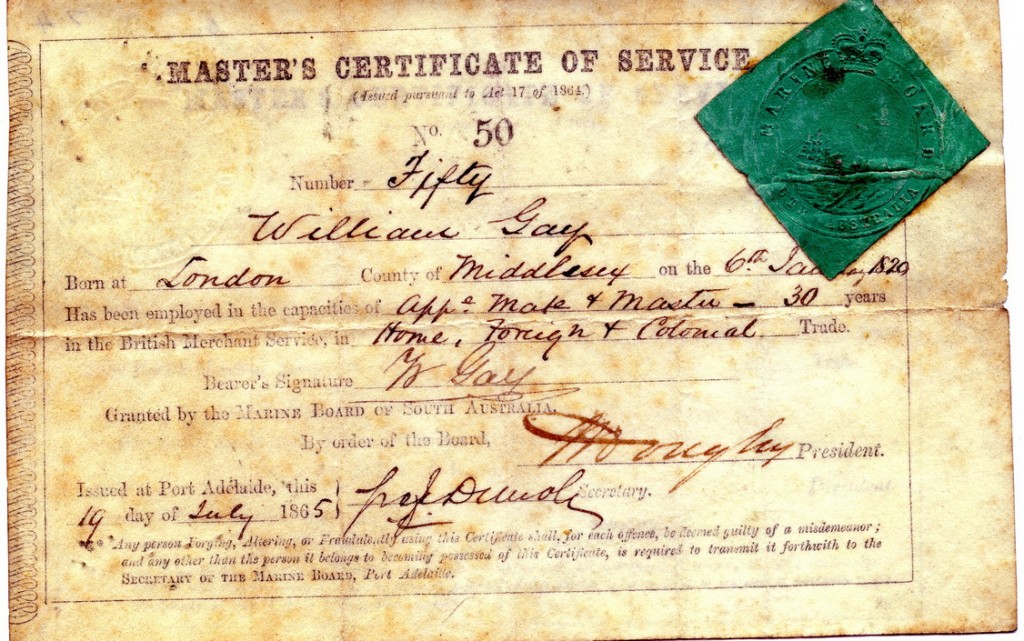 MASTER'S CERTIFICATE OF SERVICE
(Issued pursuant to Act 17 of 1864.)
No. 50
Number Fifty
William Gay
Born at London County of Middlesex on the 6th January 1820
Has been employed in the capacities of Appe Mate & Master - 30 years
in the British Merchant Service, in Home, Foreign & Colonial Trade.
Bearer's Signature W Gay
Granted by the MARINE BOARD OF SOUTH AUSTRALIA.
By order of the Board,
President.
Issued at Port Adelaide, this
19 day of July 1865
Secretary.
Any person Forging, Altering, or Fraudulently using this Certificate shall, for each offence, be deemed guilty of a misdemeanor;
and any other than the person it belongs to becoming possessed of this Certificate, is required to transmit it forthwith to the
SECRETARY OF THE MARINE BOARD, Port Adelaide.
MARINE BOARD
AUSTRALIA